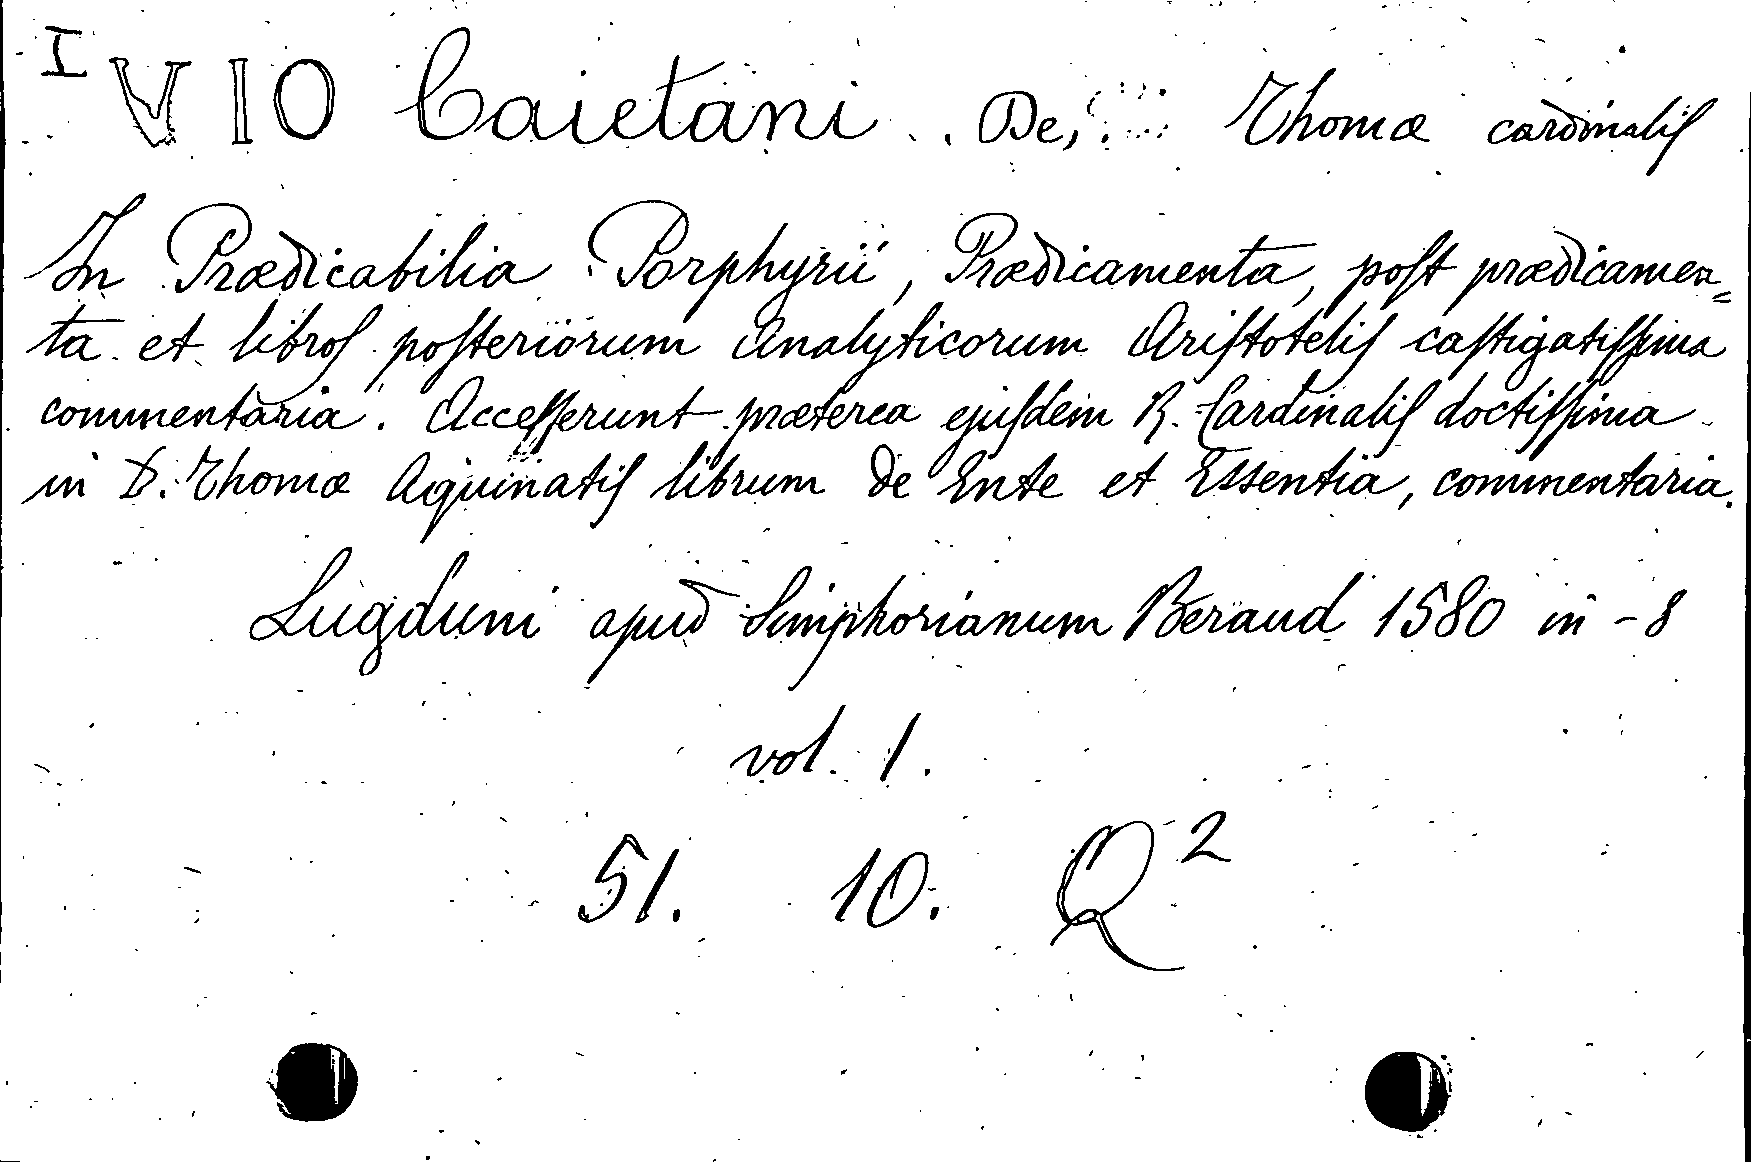 I
VIO Caietani . De, Thomæ cardinaliſ
In Prædicabilia Porphyrii, Prædicamenta, poſt prædicamen=
ta et libroſ poſteriorum Analyticorum Ariſtoteliſ caſtigatiſſima
commentaria. Acceſſerunt præterea ejuſdem R. Cardinaliſ doctiſſima
in D. Thomæ Aquinatiſ librum de Ente et Essentia, commentaria.
Lugduni apud Simphorianum Beraud 1580 in-8
vol. 1.
51. 10. Q²